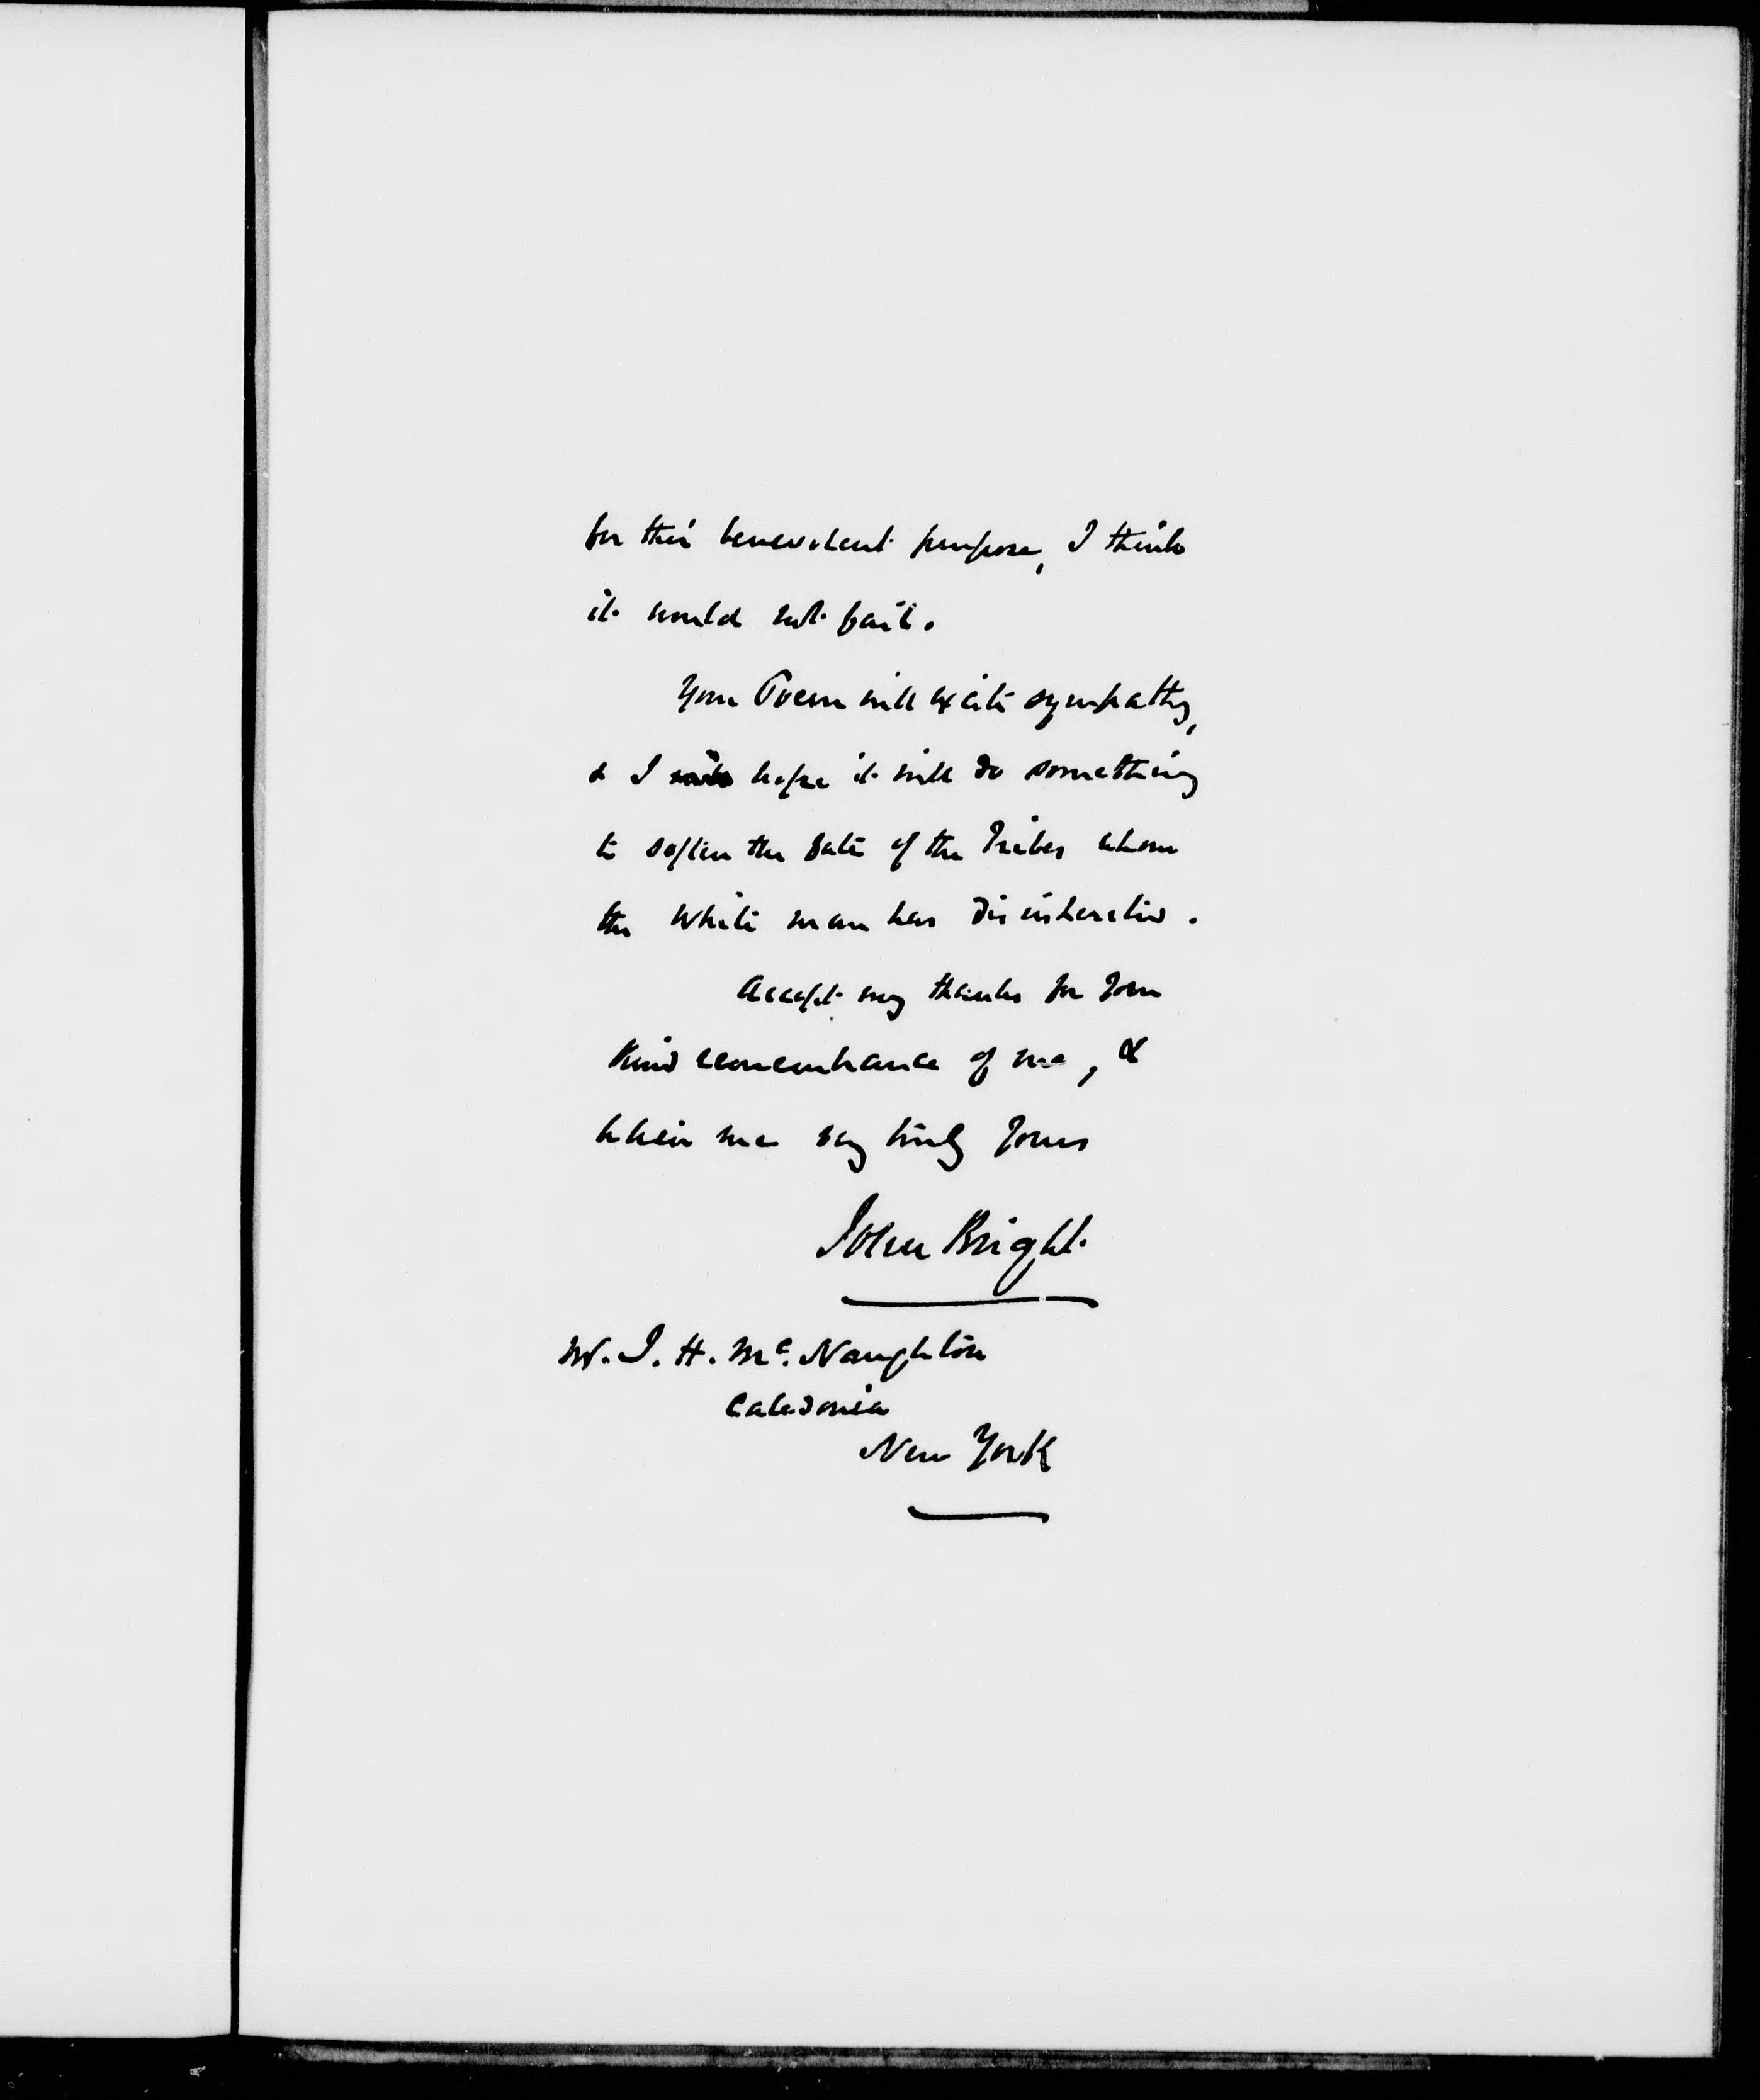 for this benevolent purpose, I think
it would not fail.
Your Poem will excite sympathy,
& I hope it will do something
to soften the fate of the Tribes whom
the White man has disinherited.
Accept my thanks for your
kind remembrance of me, &
believe me very truly yours
John Bright.
Mr. J. H. Mc. Naughton
Caledonia
New York